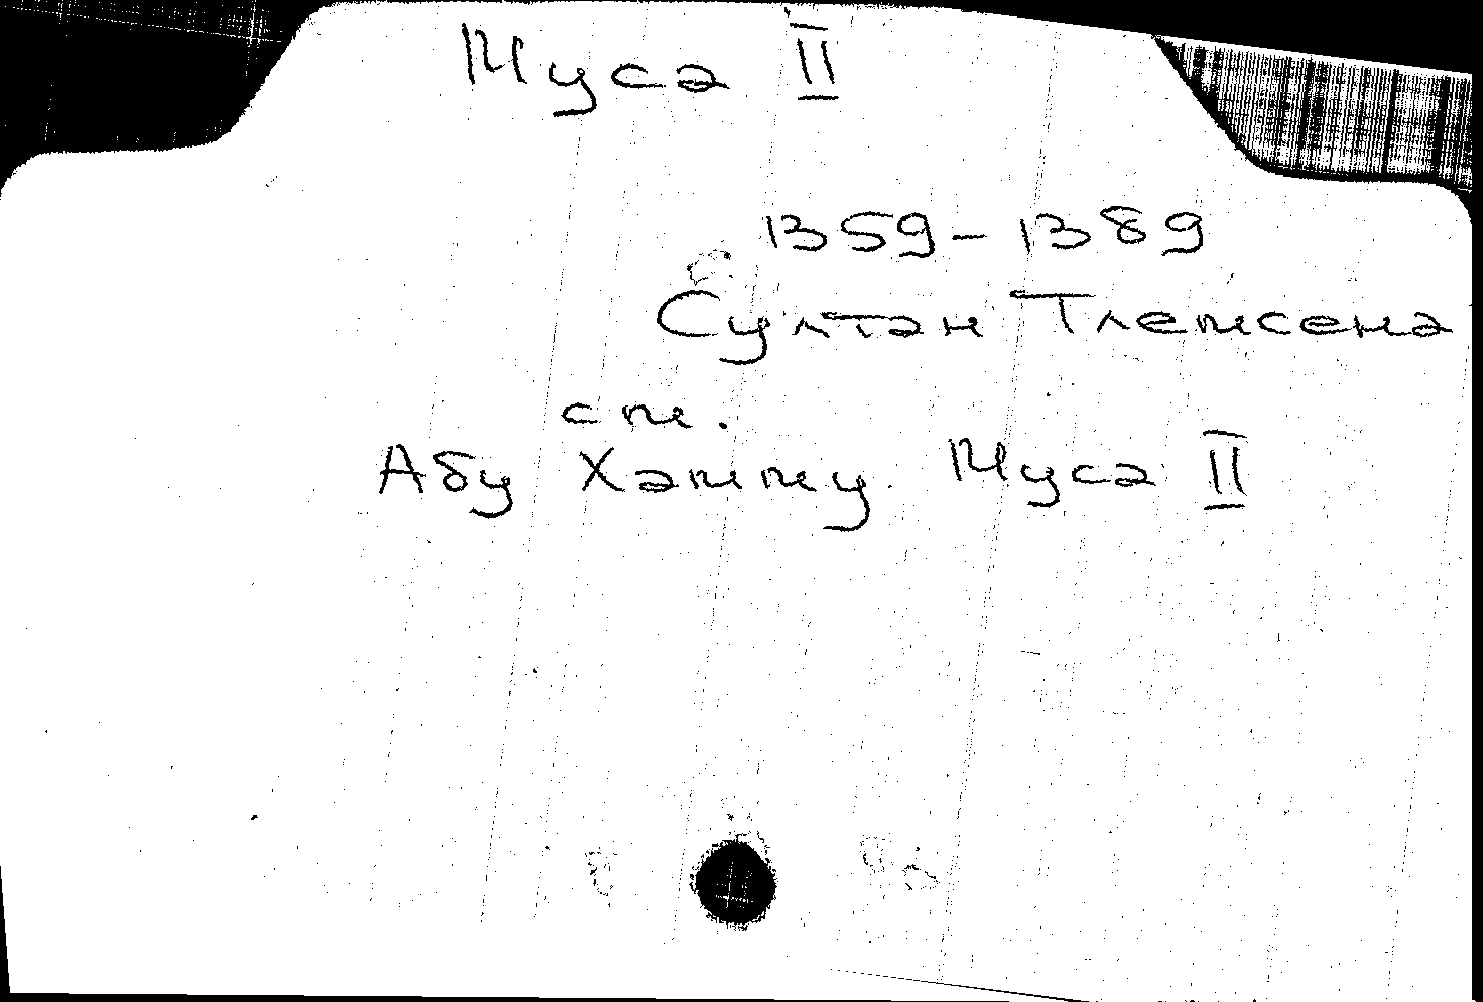 Муса II
1359-1389
Султан Тлемсена
см.
Абу Хамму Муса II